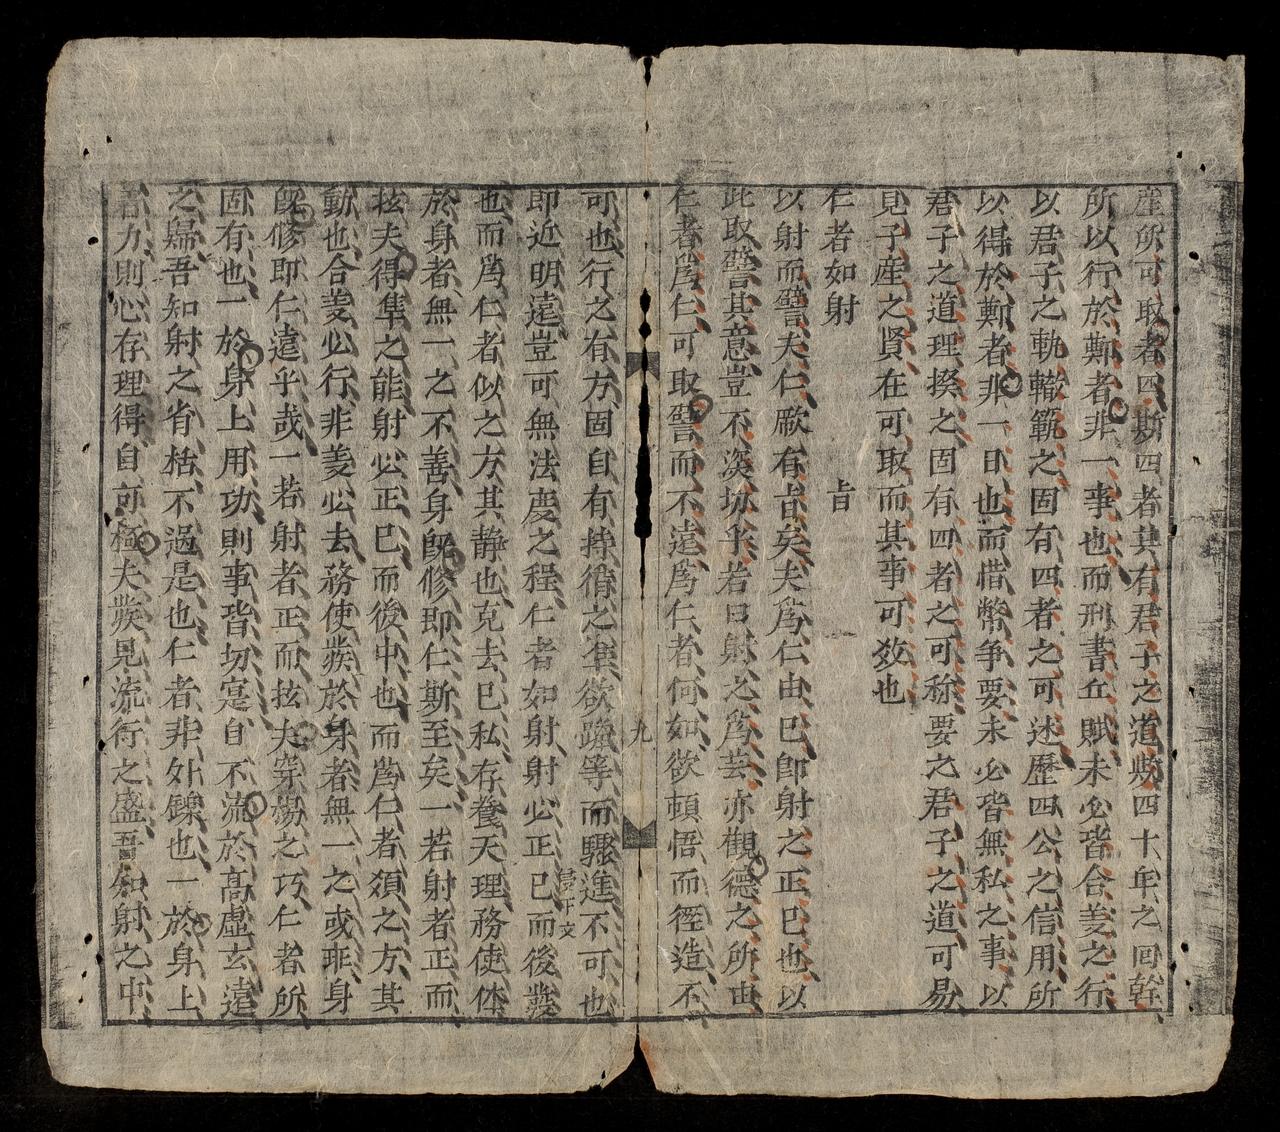 産所可取者四斯四者其有君子之道歟四十年之回幹
所以行於鄭者非一事也而刑書丘賦未必皆合義之行
以君子之軌轍範之固有四者之可述歷四公之信用所
以得於鄭者非一日也而惜幣争要未必皆無私之事以
君子之道理揆之固有四者之可称要之君子之道可易
見子産之賢在可取而其事可效也
仁者如射
旨
以射而譬夫仁厥有旨矣夫為仁由己即射之正己也以
此取譬其意豈不深切乎若曰射之為芸亦觀德之所由
仁者為仁可取譬而不遠為仁者何如欲頓悟而徑造不
九
可也行之有方固自有持循之準欲躐等而驟進不可也
即近明遠豈可無法度之程仁者如射射必正己而後發
虚下文
也而為仁者似之方其静也克去己私存養天理務使体
於身者無一之不善身既修即仁斯至矣一若射者正而
抜夫得隼之能射必正己而後中也而為仁者須之方其
動也合義必行非義必去務使發於身者無一之或非身
既修即仁遠乎哉一若射者正而抜夫穿楊之巧仁者所
固有也一於身上用功則事皆切寔自不流於髙虚玄遠
之歸吾知射之省栝不過是也仁者非外鑠也一於身上
着力則心存理得自可極夫發見流行之盛吾知射之中